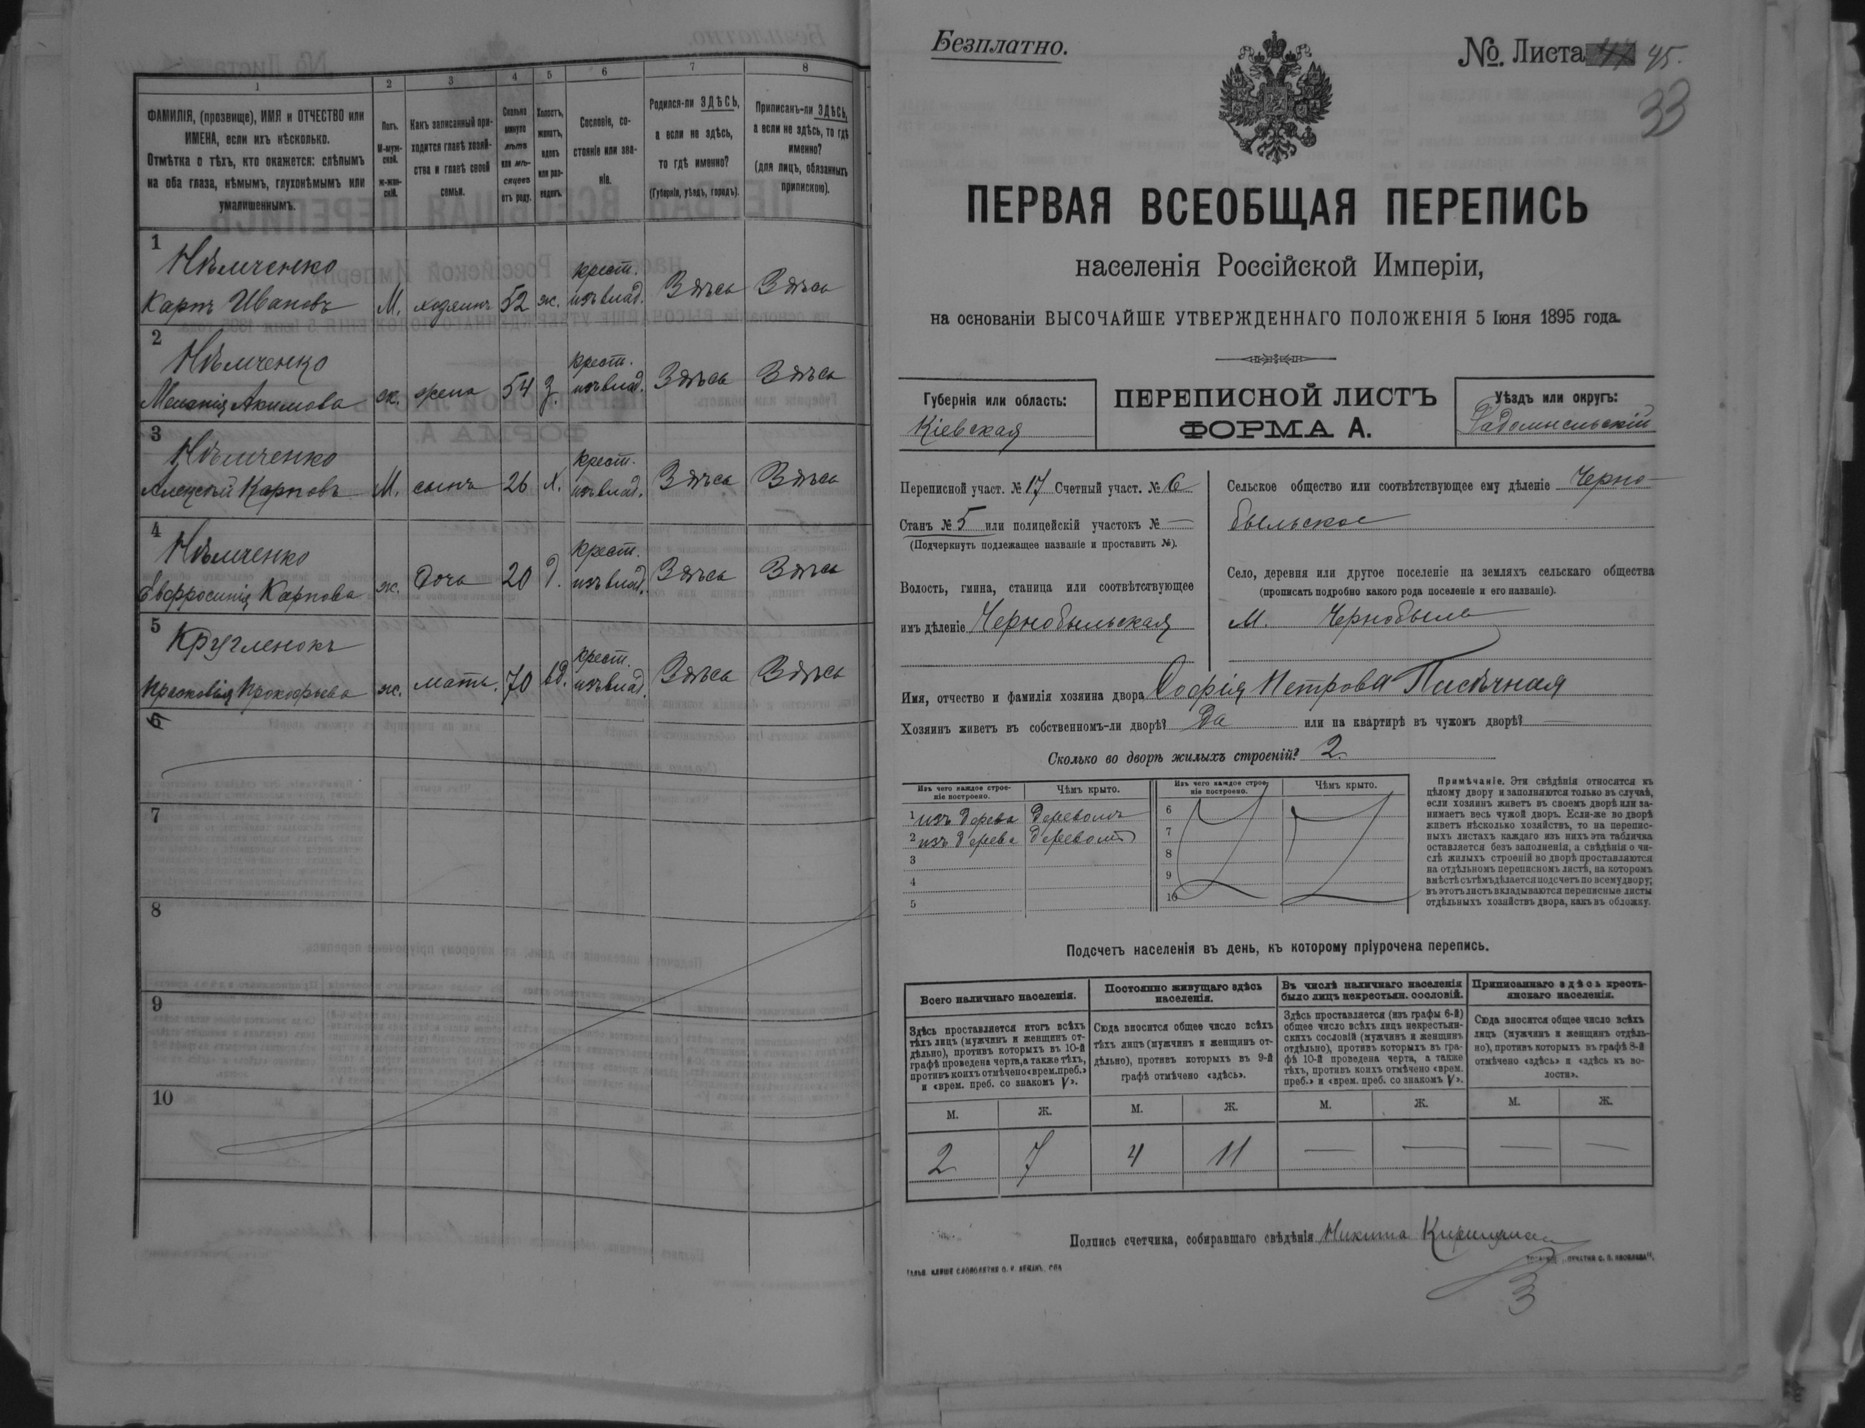 1
2
3
4
5
6
7
8
ФАМИЛІЯ, (прозвище), ИМЯ и ОТЧЕСТВО или
ИМЕНА, если ихъ нѣсколько.
Отмѣтка о тѣхъ, кто окажется: слѣпымъ
на оба глаза, нѣмымъ, глухонѣмымъ или
умалишеннымъ.
Полъ.
М-муж-
ской.
ж-жен-
скій.
Какъ записанный при-
ходится главѣ хозяй-
ства и главѣ своей
семьи.
Сколько
минуло
лѣтъ
или мѣ-
сяцевъ
отъ роду.
Холостъ,
женатъ,
вдовъ
или раз-
веденъ.
Сословіе, со-
стояніе или зва-
ніе.
Родился-ли ЗДѢСЬ,
а если не здѣсь,
то гдѣ именно?
(Губернія, уѣздъ, городъ).
Приписанъ-ли ЗДѢСЬ,
а если не здѣсь, то гдѣ
именно?
(для лицъ, обязанныхъ
припискою).
1
Нѣмченко
Карпъ Ивановъ М. хозяинъ 52 ж. крест. изъ влад. Здѣсь Здѣсь
2
Нѣмченко
Меланія Акимова ж. жена 54 з. крест. изъ влад. Здѣсь Здѣсь
3
Нѣмченко
Алексѣй Карповъ М. сынъ 26 х. крест. изъ влад. Здѣсь Здѣсь
4
Нѣмченко
Евфросинія Карпова ж. дочь 20 д. крест. изъ влад. Здѣсь Здѣсь
5
Кругленокъ
Прасковія Прокофьева ж. мать. 70 вд. крест. изъ влад. Здѣсь Здѣсь
6
7
8
9
10
Безплатно.
№ Листа 45.
33
ПЕРВАЯ ВСЕОБЩАЯ ПЕРЕПИСЬ
населенія Россійской Имперіи,
на основаніи ВЫСОЧАЙШЕ УТВЕРЖДЕННАГО ПОЛОЖЕНІЯ 5 Іюня 1895 года.
Губернія или область:
Кіевская
ПЕРЕПИСНОЙ ЛИСТЪ
ФОРМА А.
Уѣздъ или округъ:
Радомысльскій
Переписной участ. № 17 Счетный участ. № 6
Станъ № 5 или полицейскій участокъ № —
(Подчеркнуть подлежащее названіе и проставить №).
Волость, гмина, станица или соотвѣтствующее
имъ дѣленіе Чернобыльская
Сельское общество или соотвѣтствующее ему дѣленіе Черно-
быльское
Село, деревня или другое поселеніе на земляхъ сельскаго общества
(прописать подробно какого рода поселеніе и его названіе).
М. Чернобыль
Имя, отчество и фамилія хозяина двора Софія Петрова Писѣчная
Хозяинъ живетъ въ собственномъ-ли дворѣ? Да или на квартирѣ въ чужомъ дворѣ? —
Сколько во дворѣ жилыхъ строеній? 2.
Изъ чего каждое строе-
ніе построено.
Чѣмъ крыто.
Изъ чего каждое строе-
ніе построено.
Чѣмъ крыто.
1 изъ дерева деревомъ
2 изъ дерева деревомъ
3
4
5
6
7
8
9
10
Примѣчаніе. Эти свѣдѣнія относятся къ
цѣлому двору и заполняются только въ случаѣ,
если хозяинъ живетъ въ своемъ дворѣ или за-
нимаетъ весь чужой дворъ. Если-же во дворѣ
живетъ нѣсколько хозяйствъ, то на перепис-
ныхъ листахъ каждаго изъ нихъ эта табличка
оставляется безъ заполненія, а свѣдѣнія о чи-
слѣ жилыхъ строеній во дворѣ проставляются
на отдѣльномъ переписномъ листѣ, на которомъ
вмѣстѣ съ тѣмъ дѣлается подсчетъ по всему двору;
въ этотъ листъ вкладываются переписные листы
отдѣльныхъ хозяйствъ двора, какъ въ обложку.
Подсчетъ населенія въ день, къ которому пріурочена перепись.
Всего наличнаго населенія.
Здѣсь проставляется итогъ всѣхъ
тѣхъ лицъ (мужчинъ и женщинъ от-
дѣльно), противъ которыхъ въ 10-й
графѣ проведена черта, а также тѣхъ,
противъ коихъ отмѣчено «врем. преб.»
и «врем. преб. со знакомъ V».
Постоянно живущаго здѣсь
населенія.
Сюда вносится общее число всѣхъ
тѣхъ лицъ (мужчинъ и женщинъ от-
дѣльно), противъ которыхъ въ 9-й
графѣ отмѣчено «здѣсь».
Въ числѣ наличнаго населенія
было лицъ некрестьян. сословій.
Здѣсь проставляется (изъ графы 6-й)
общее число всѣхъ лицъ некрестьян-
скихъ сословій (мужчинъ и женщинъ
отдѣльно), противъ которыхъ въ гра-
фѣ 10-й проведена черта, а также
тѣхъ, противъ коихъ отмѣчено «врем.
преб.» и «врем. преб. со знакомъ V».
Приписаннаго здѣсь кресть-
янскаго населенія.
Сюда вносится общее число всѣхъ
лицъ (мужчинъ и женщинъ отдѣль-
но), противъ которыхъ въ графѣ 8-й
отмѣчено «здѣсь» и «здѣсь къ во-
лости».
М. Ж. М. Ж. М. Ж. М. Ж.
2 7 4 11 — — — —
Подпись счетчика, собиравшаго свѣдѣнія Никита
3